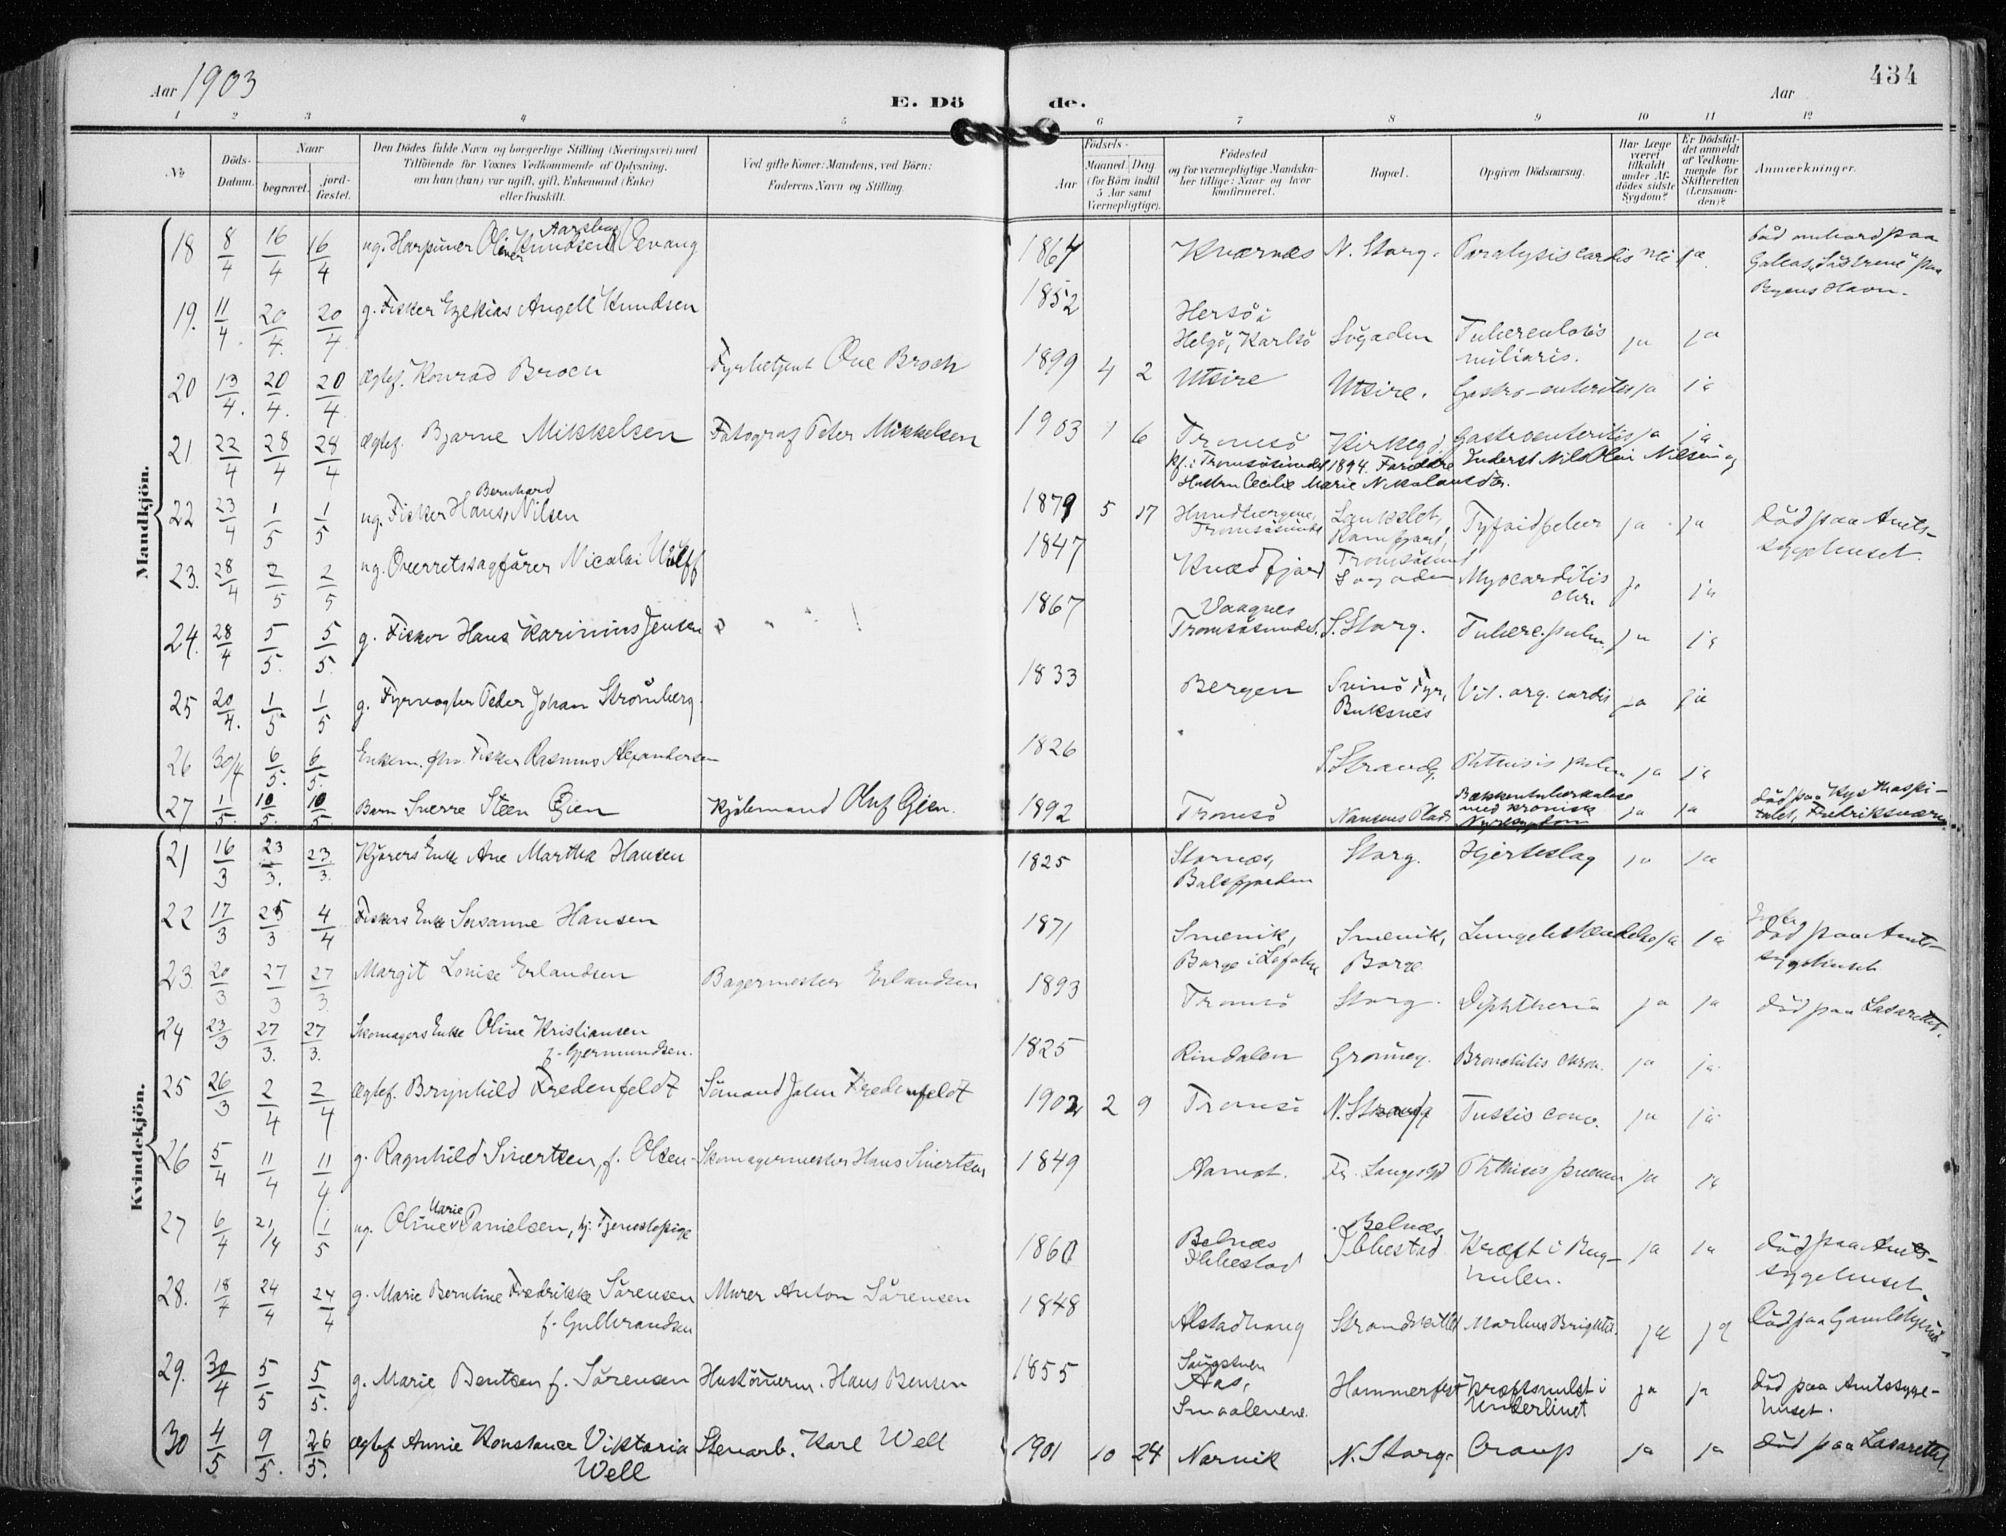 Aar 1903
E. Dö de.
Aar
434
1 2 3 4 5 6 7 8 9 10 11 12
No
Döds-Datum.
Naar
begravet.
jord-fæstet.
Den Dödes fulde Navn og borgerlige Stilling (Næringsvei) med
Tilföiende for Voxnes Vedkommende af Oplysning,
om han (hun) var ugift, gift, Enkemand (Enke)
eller fraskilt.
Ved gifte Koner: Mandens, ved Börn:
Faderens Navn og Stilling.
Födsels-
Aar
Maaned Dag
(for Börn indtil
5 Aar samt
Værnepligtige).
Födested
og for værnepligtige Mandskaber tillige: Naar og hvor
konfirmeret.
Bopæl.
Opgiven Dödsaarsag.
Har Læge
været
tilkaldt
under Afdödes sidste
Sygdom?
Er Dödsfaldet anmeldt
af Vedkommende for
Skifteretten
(Lensmanden)?
Anmærkninger.
Mandkjön.
18 8/4 16/4 16/4 ug. Harpuner Oliver Knudsen Oevang 1867 Kværnes N. Storg. Paralysis cordis nei ja
Död ombord paa
Galeas "Söstrene" paa
Byens Havn.
19. 11/4 20/4 20/4 g. Fisker Ezekias Angell Knudsen 1852 Hersö i
Helgö, Karlsö Sögaden Tuberculosis
miliaris. ja ja
20 13/4 20/4 20/4 ægtef. Konrad Broch Fyrbetjent Ove Broch 1899 4 2 Utsire Utsire. Gastro-enteritis ja ja
21 22/4 28/4 28/4 ægtef. Bjarne Mikkelsen Fotograf Peter Mikkelsen 1903 1 6 Tromsö Kirkeg. Gastroenteritis ja ja
kf. i Tromsösundet 1894. Forældre Inderst Nils Olai Nilsen og
Hustru Cecilie Marie Nikolaisdtr.
22 23/4 1/5 1/5 ug. Fisker Hans Bernhard Nilsen 1879 5 17 Hundbergene, Tromsösundet Lankslett, Ramfjord, Tromsösund Tyfoidfeber ja ja Död paa Amts-
sygehuset.
23. 28/4 2/5 2/5 ug. Overretssagförer Nicolai Wulff 1847 Kvædfjord Sögaden Myocarditis
chr. ja ja
24. 28/4 5/5 5/5 g. Fisker Hans Karinius Jensen 1867 Vaagnes
Tromsösundet. S. Storg. Tuberc. pulm. ja ja
25 20/4 1/5 1/5 g. Fyrvogter Peder Johan Strömberg. 1833 Bergen Svinö Fyr,
Buksnes Vit. org. cordis ja ja
26 30/4 6/5 6/5 Enkem. fhv. Fisker Rasmus Alexandersen 1826 S. Strandg. Phthisis pulm ja ja
27 1/5 10/5 10/5 Barn Sverre Steen Gjen Kjöbmand Oluf Gjen. 1892 Tromsö Nansens Plads Bækkentuberkulose
med kronisk
Nyresygdom ja ja Död paa Kysthospi-
talet, Fredriksværn.
Kvindekjön.
21 16/3 23/3 23/3 Kjörers Enke Ane Martha Hansen 1825 Stornæs,
Balsfjorden Storg. Hjerteslag ja ja
22 17/3 25/3 4/4 Fiskers Enke Susanne Hansen 1871 Smevik,
Borge i Lofoten Smevik,
Borge Lungebetændelse ja ja Död paa Amts-
sygehuset
23 20/3 27/3 27/3 Margit Lovise Erlandsen Bagermester Erlandsen 1893 Tromsö Storg. Diphtheria ja ja Död paa Lasarettet.
24 23/3 27/3 27/3 Skomagers Enke Oline Kristiansen
f. Gjermundsen. 1825 Rindalen Grönneg. Bronchitis chron. ja ja
25 26/3 2/4 2/4 ægtef. Brynhild Fredenfeldt Sömand John Fredenfeldt 1902 2 9 Tromsö N. Strandg. Tussis conv. ja ja
26 5/4 11/4 11/4 g. Ragnhild Sivertsen, f. Olsen Skomagermester Hans Sivertsen 1849 Aamot. Fr. Langesgd Phthisis pulmon ja ja
27 6/4 21/4 1/5 ug. Oline Marie Danielsen, tj. Tjenestepige 1860 Belnæs
Ibbestad Belnæs
Ibbestad Kræft i Bug-
hulen. ja ja Död paa Amts-
sygehuset.
28. 18/4 24/4 24/4 g. Marie Berntine Fredrikke Sörensen
f. Gulbrandsen Murer Anton Sörensen 1848 Alstadhaug Strandskillet Morbus Brightii. ja ja Död paa Gamlehjemmet
29. 30/4 5/5 5/5 g. Marie Bentsen f. Sörensen Hustömrm. Hans Bensen 1855 Aas,
Smaalenene. Hammerfest Kræftsvulst i
Underlivet ja ja Död paa Amtssyge-
huset.
30 4/5 9/5 26/5 ægtef Annie Konstance Viktoria
Well Stenarb. Karl Well 1901 10 24 Narvik N. Storg. Croup ja ja Död paa Lasarettet